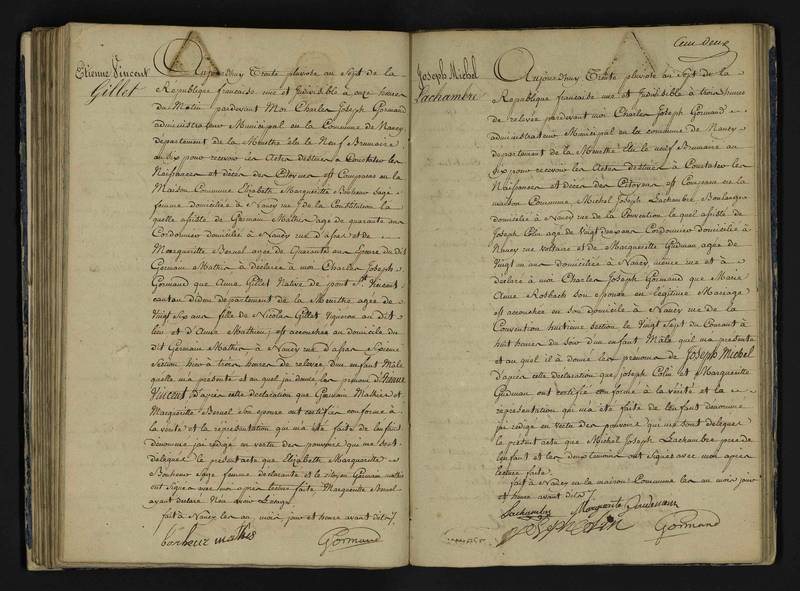 Etienne Vincent
Gillet
Aujourdhuy Trente pluviose an Sept de la
République francaise une et Indivisible à onze heures
du Matin pardevant Moi Charles Joseph Gormand
administrateur Municipal en la Commune de Nancy
departement de la Meurthe élu le Neuf Brumaire
an six pour recevoir les Actes destinés a Constater les
Naissances et décès des Citoyens est Comparue en la
Maison Commune Elizabeth Marguerithe Bonheur sage
femme domiciliée à Nancy rue de la Constitution la
quelle assistée de Germain Mathis agé de quarante ans
Cordonnier domicilié à Nancy rue d'assas et de
Margueritte Bersuel agée de Quarante ans Epouse du dit
Germain Mathis à déclaré à moi Charles Joseph
Gormand que Anne Gillet Native de pont St Vincent
canton dudem departement de la Meurthe agée de
Vingt Six ans fille de Nicolas Gillet Vigneron au dit
lieu et d'Anne Mathieu, est accouchée au domicile du
dit Germain Mathis, à Nancy rue d'assas Sixieme
Section hier à trois heures de relevée d'un enfant Mâle
quelle m'a présenté et au quel j'ai donné les prénoms d'Etienne
Vincent, D'après cette déclaration que Germain Mathis et
Margueritte Bersuel son épouse ont certifiée conforme à
la vérité et la représentation qui m'a été faite de l'enfant
dénommé j'ai rédigé en vertu des pouvoirs qui me sont
délégués le présent acte que Elizabeth Marguerithe
Bonheur Sage femme déclarante et le citoyen Germain mathis
ont signé avec moi après lecture faite Margueritte Bersuel
ayant declaré Non avoir L'usage
fait à Nancy les an, mois, jour et heure avant dits
bonheur mathis Gormand
Cent deux
Joseph Michel
Lachambre
Aujourdhuy Trente pluviose an Sept de la
République francaise une et Indivisible à trois heures
de relevée pardevant moi Charles Joseph Gormand
administrateur Municipal en la commune de Nancy
departement de la Meurthe élu le neuf Brumaire an
Six pour recevoir les Actes destinés à Constater les
Naissances et décès des Citoyens est Comparu en la
maison Commune Michel Joseph Lachambre, Boulanger
domicilié à Nancy rue de la Convention le quel assisté de
Joseph Colin agé de Vingt deux ans Cordonnier domicilié à
Nancy rue Voltaire et de Marguerite Gudman agée de
Vingt un ans domiciliée à Nancy même rue et à
déclaré à moi Charles Joseph Gormand que Marie
Anne Rosbach son epouse en légitime Mariage
est accouchée en son domicile à Nancy rue de la
Convention huitieme Section le Vingt Sept du Courant à
huit heures du soir d'un enfant Mâle qu'il m'a présenté
et au quel il à donné les prénoms de Joseph Michel
D'après cette déclaration que Joseph Colin et Marguerite
Gudman ont certifié conforme à la vérité et la
représentation qui m'a été faite de l'enfant dénommé
j'ai rédigé en vertu des pouvoirs qui me sont délégués
le présent acte que Michel Joseph Lachambre père de
l'enfant et les deux temoins ont signés avec moi après
lecture faite
fait à Nancy en la maison Commune les an mois jour
et heure avant dits
Lachambre Marguerite Gudemann
Joseph Colin Gormand